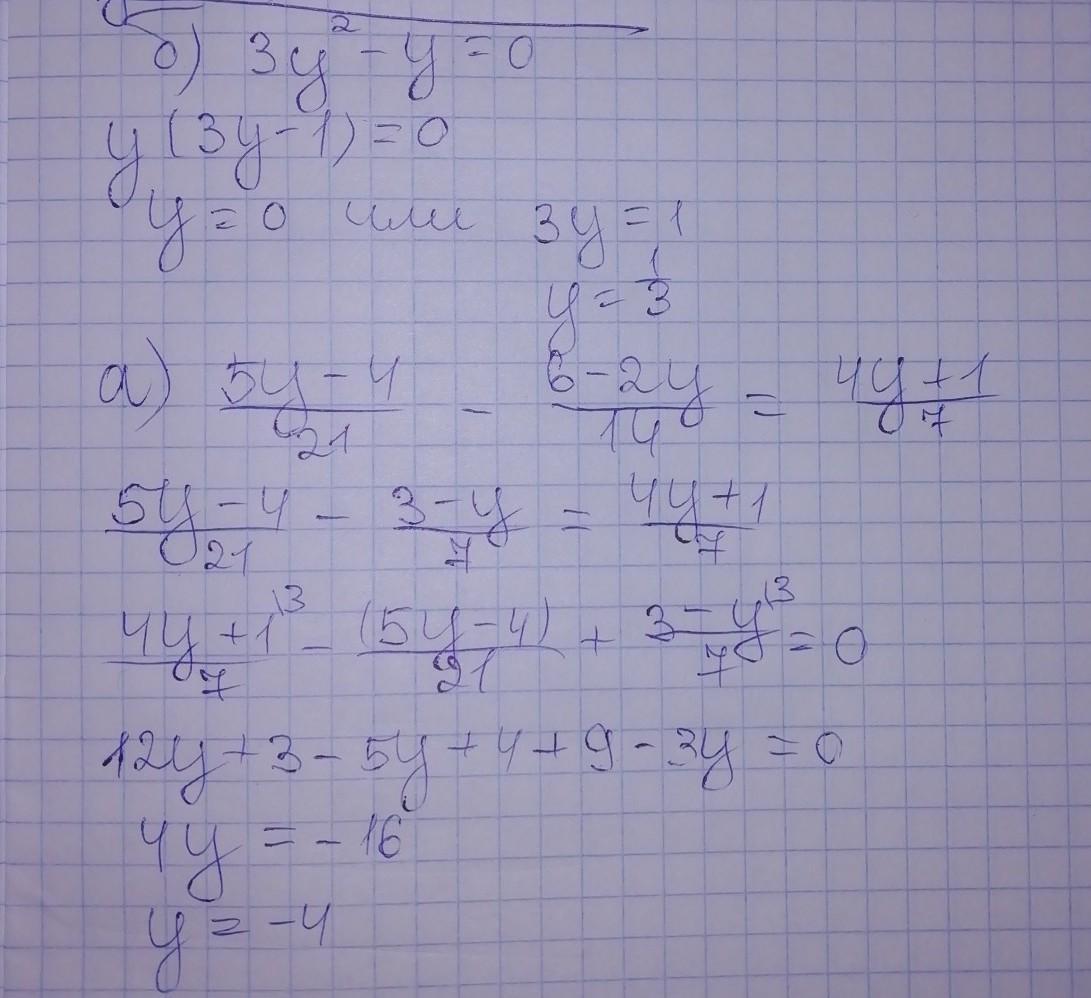 б) 3y² - y = 0
y(3y-1) = 0
y = 0 или 3y = 1
y = 1/3
а) (5y - 4)/21 - (6 - 2y)/14 = (4y + 1)/7
(5y - 4)/21 - (3 - y)/7 = (4y + 1)/7
(4y + 1)/7 \3 - (5y - 4)/21 + (3 - y)/7 \3 = 0
12y + 3 - 5y + 4 + 9 - 3y = 0
4y = - 16
y = -4